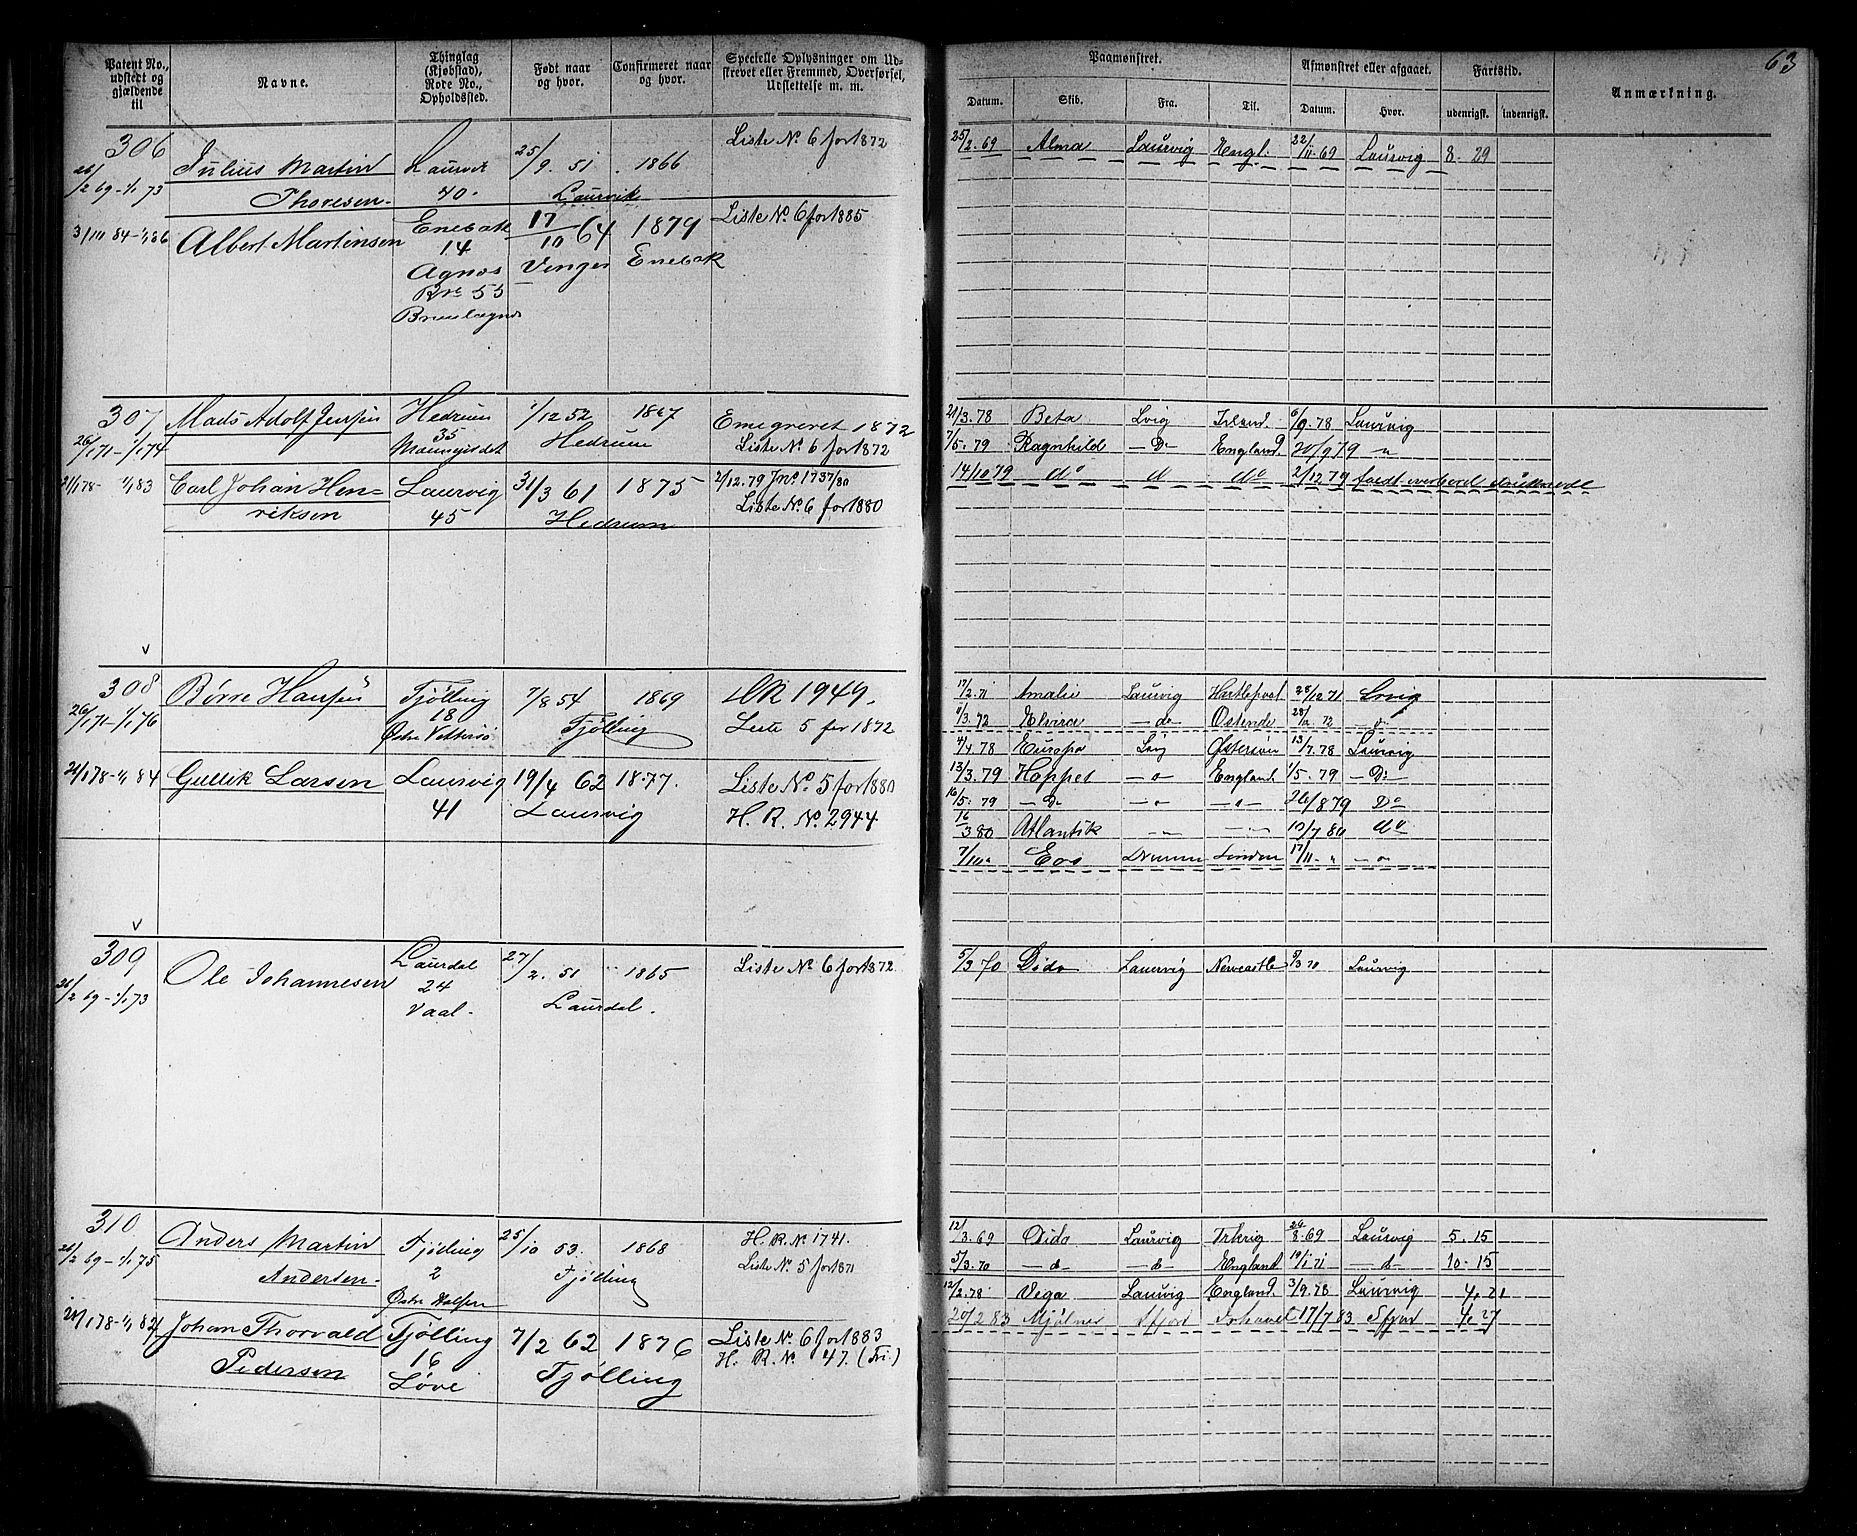 63
Patent No., udstedt og gjældende til
Navne.
Thinglag (Kjøbstad), Rode No., Opholdssted.
Født naar og hvor.
Confirmeret naar og hvor.
Specielle Oplysninger om Udskrevet eller Fremmed, Overførsel, Udslettelse m. m.
Paamønstret.
Afmønstret eller afgaaet.
Fartstid.
Anmærkning.
Datum. Skib. Fra. Til. Datum. Hvor. udenrigsk. indenrigsk.
306
Julius Martin Laurvik 25/9. 51 1866 Liste No 6 for 1872
26/2 69 - 1/1 73 Thoresen. 40. Laurvik
3/10 84 - 1/1 86 Albert Martinsen Enebak 17/10 64 1879 Liste No. 6 for 1885
14 Vinger Enebak
Agnæs
Bno 55
25/2. 69 Alma Laurvig Engl. 22/11. 69 Laurvig 8. 29
307 Mads Adolf Jensen Hedrum 1/12 52 1867 Emigreret 1872
26/1 71 - 1/1 74 35 Hedrum Liste No. 6 for 1872
21/1 78 - 1/1 83 Carl Johan Hen= Laurvig 31/3 61 1875 2/12. 79 Jno 1737/80
riksen 45 Hedrum Liste No. 6 for 1880
21/3. 78 Beta Lvig Irland. 6/9. 78 Laurvig
7/5. 79 Ragnhild - Do England 20/9 79 "
14/10 79 do d do 2/12 79
308 Børre Hansen Tjølling 7/8 54 1869 HR 1949.
26/1 71 - 1/1 76 18 Tjølling Liste 5 for 1872
Østre Vittersø
21/1 78 - 1/1 84 Gullik Larsen Laurvig 19/4 62 1877. Liste No. 5 for 1880
41 Laurvig H. R. No. 2944
17/2. 71 Amalie Laurvig Hartlepool 28/12 71 Lvig
/3. 72 Elvira - do Ostende 28/ 72 - d
4/4 78 Europa Lvig Østersøen 13/7. 78 Laurvig
13/3. 79 Hoppet - o England. 1/5. 79 - Do
16/5. 79 - Do - " - " 26/8 79 Do
16/3 80 Atlantik - " - " 10/7 80 do
7/10 " Eos Dramm London 17/11. " - "
309
Ole Johannesen Laurdal 27/2. 51 1865 Liste No 6 for 1872
26/2 69 - 1/1 73 24 Laurdal.
Vaal.
5/3 70 Dido Laurvig Newcastle /3 70 Laurvig
310 Anders Martin Tjølling 25/10 53. 1868 H. R. No 1741.
26/2 69 - 1/1 75 Andersen. 2 Tjølling Liste No. 5 for 1871
Østre Halsen
21/1 78 - 1/1 82 Johan Thorvald Tjølling 7/2 62 1876 Liste No. 6 for 1883
Pedersen 16 Tjølling H. R. No. 47. (Fri.)
Løve
12/3. 69 Dido Laurvig 24/8. 69 Laurvig 5. 15
5/3. 70 - d - d England 19/1 71 - d 10. 15
12/2. 78 Vega Laurvig England. 3/9. 78 Laurvig 4. 21
20/2 83 Mjølner Sfjord 17/7 83 Sfjord 4. 27